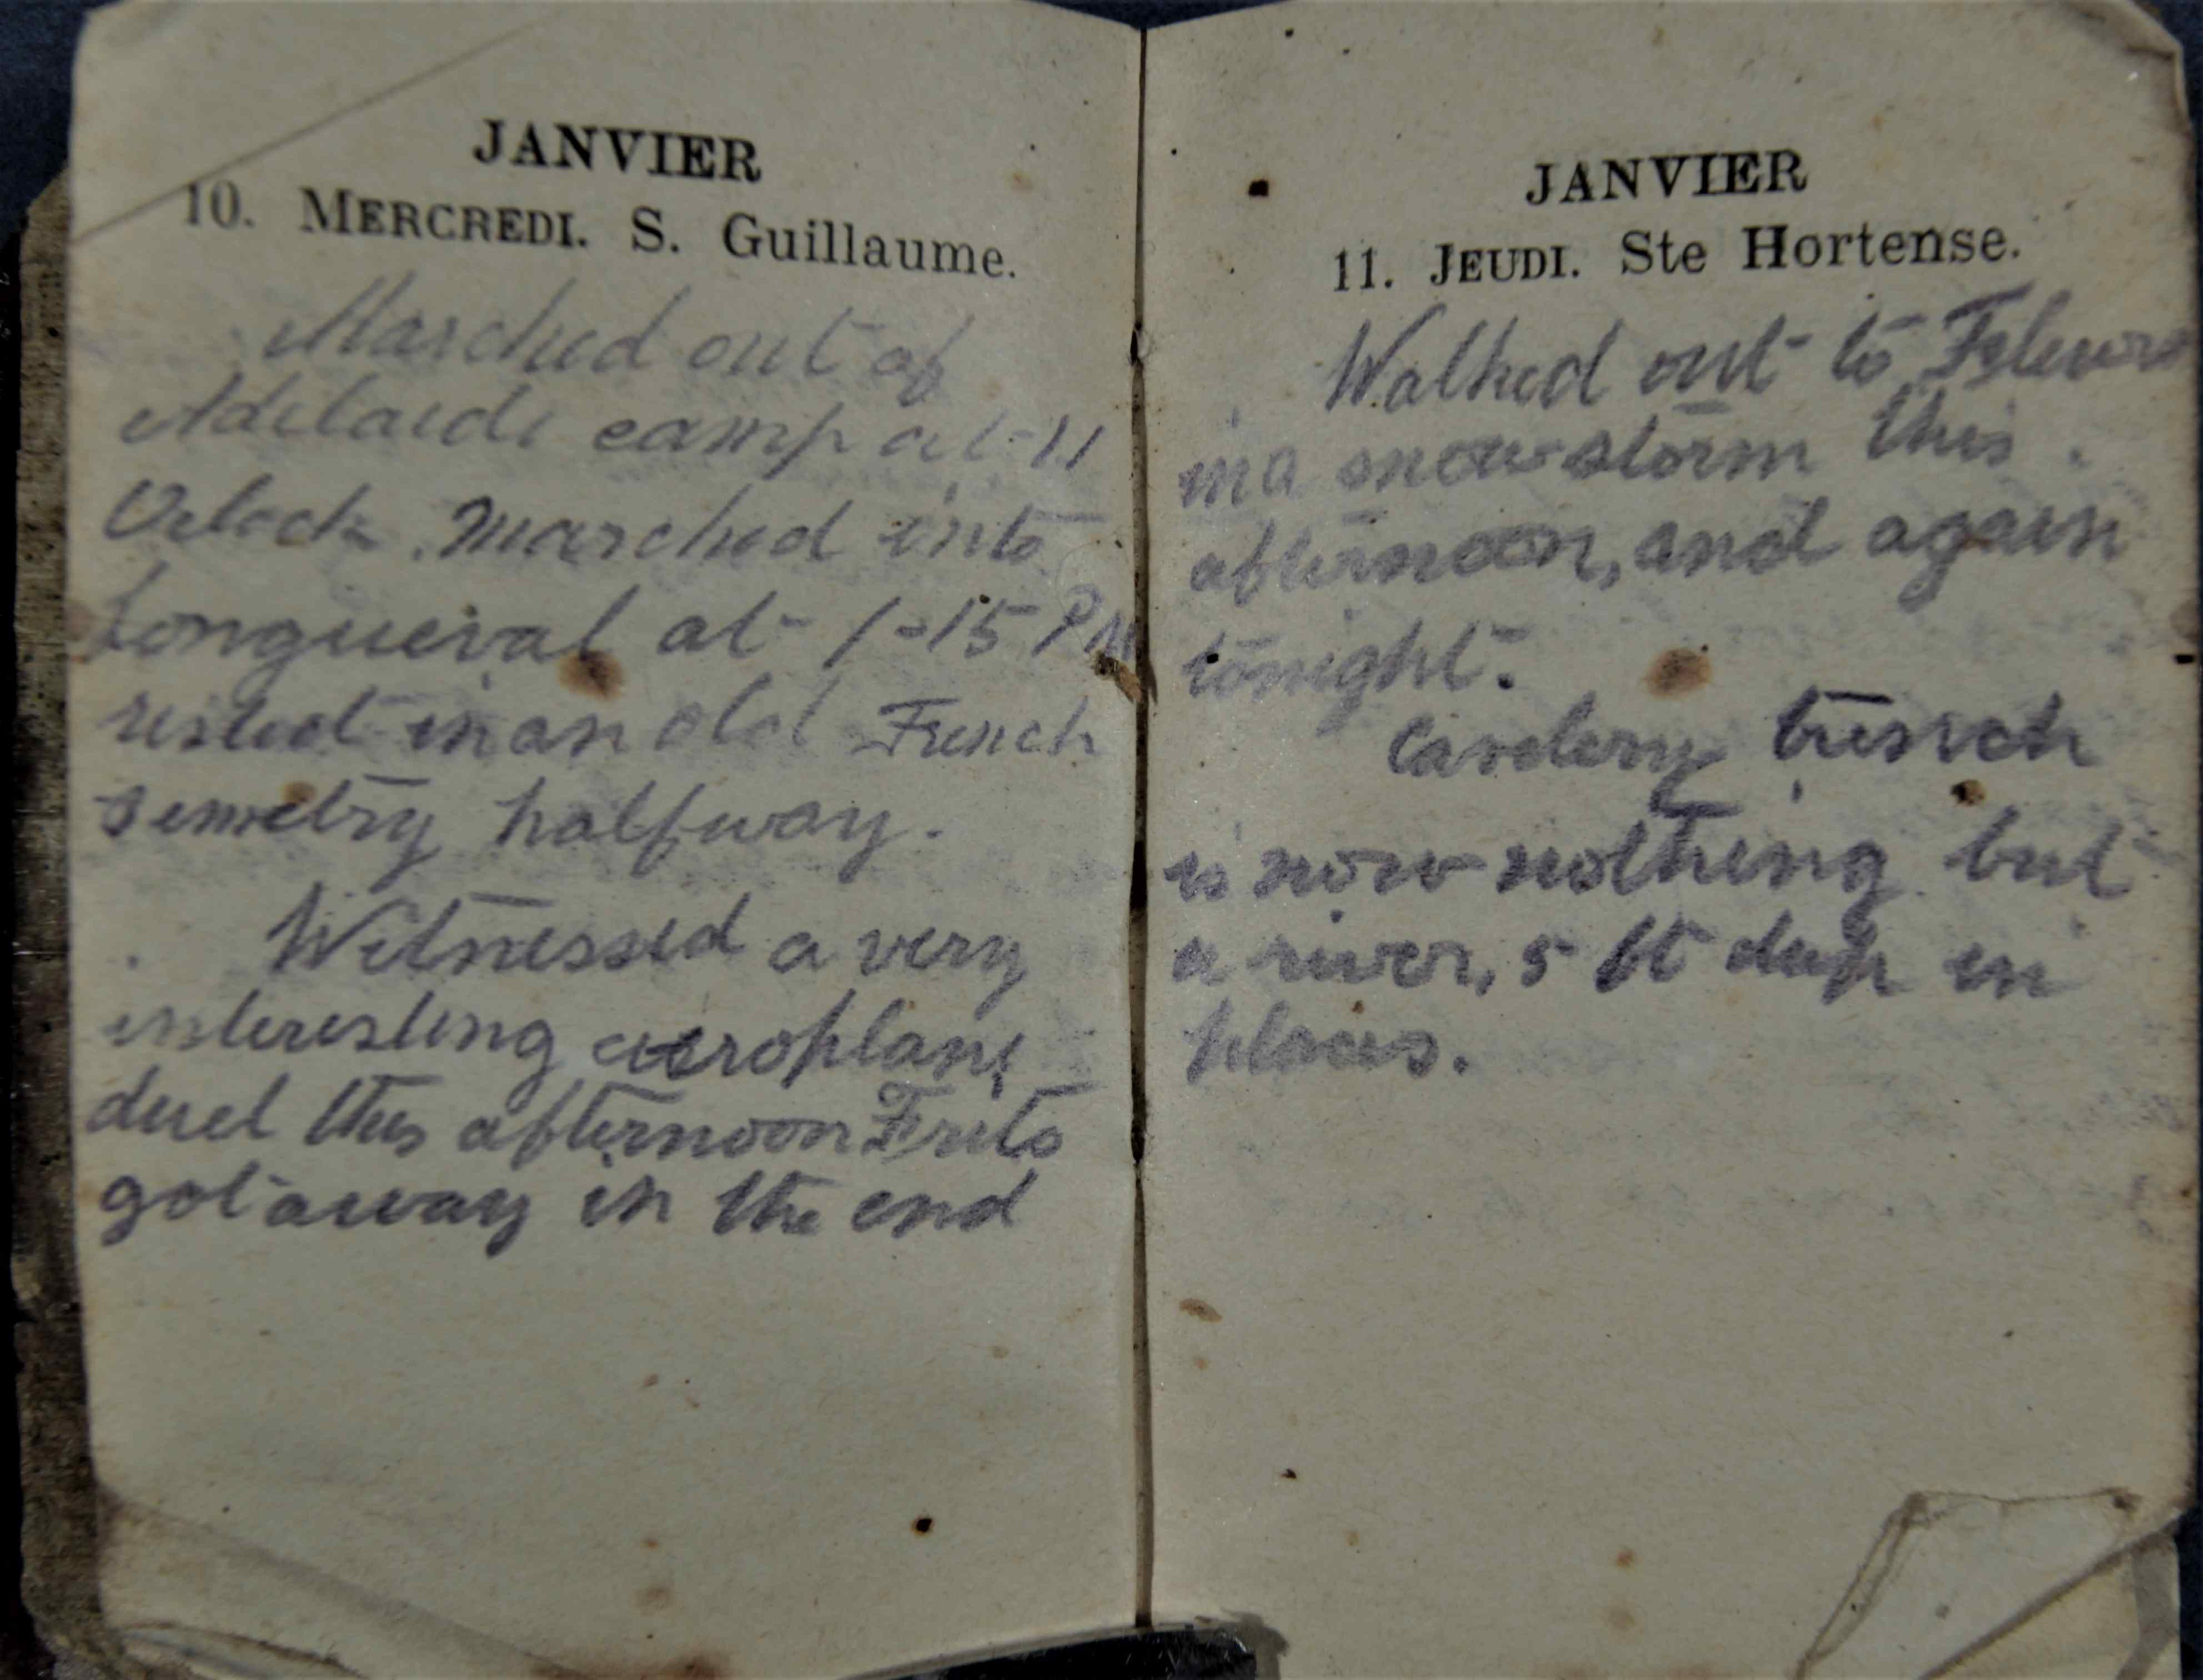 JANVIER
10. MERCREDI. S. Guillaume.
Marched out of
Adelaide camp at 11
Oclock. Marched into
Longueval at 1-15 PM
rested in an old French
semetry halfway.
Witnessed a very
interesting aeroplane
duel this afternoon Frits
got away in the end
JANVIER
11. JEUDI. Ste Hortense.
Walked out to
in a snow storm this
afternoon, and again
tonight.
trench
is now nothing but
a river, 5 ft deep in
places.